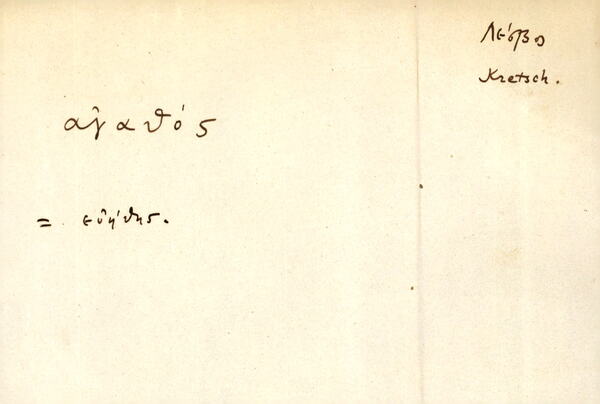 Λέσβο
Kretsch.
αγαθός
= ευήθης.